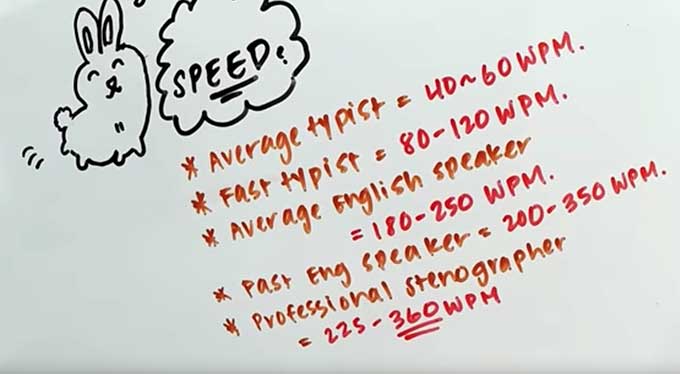 SPEED?
* Average typist = 40~60 WPM.
* Fast typist = 80-120 WPM.
* Average English speaker
= 180-250 WPM.
* Fast Eng speaker = 200-350 WPM.
* Professional stenographer
= 225-360 WPM